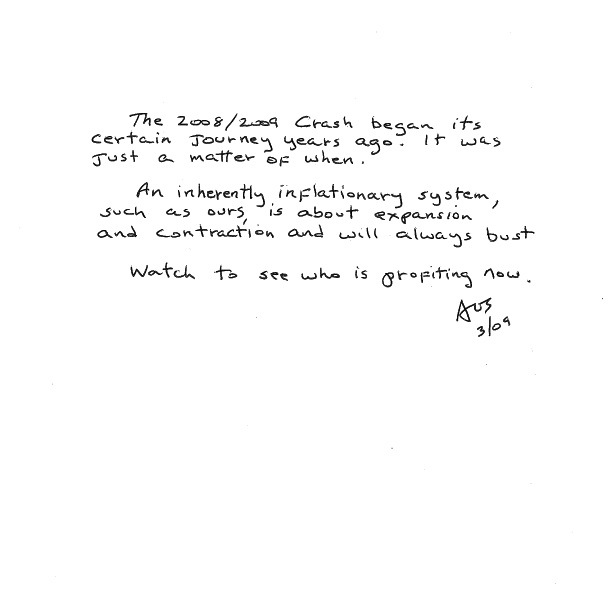 The 2008/2009 Crash began its
certain Journey years ago. It was
Just a matter of when.
An inherently inflationary system,
such as ours, is about expansion
and contraction and will always bust
Watch to see who is profiting now.
3/09